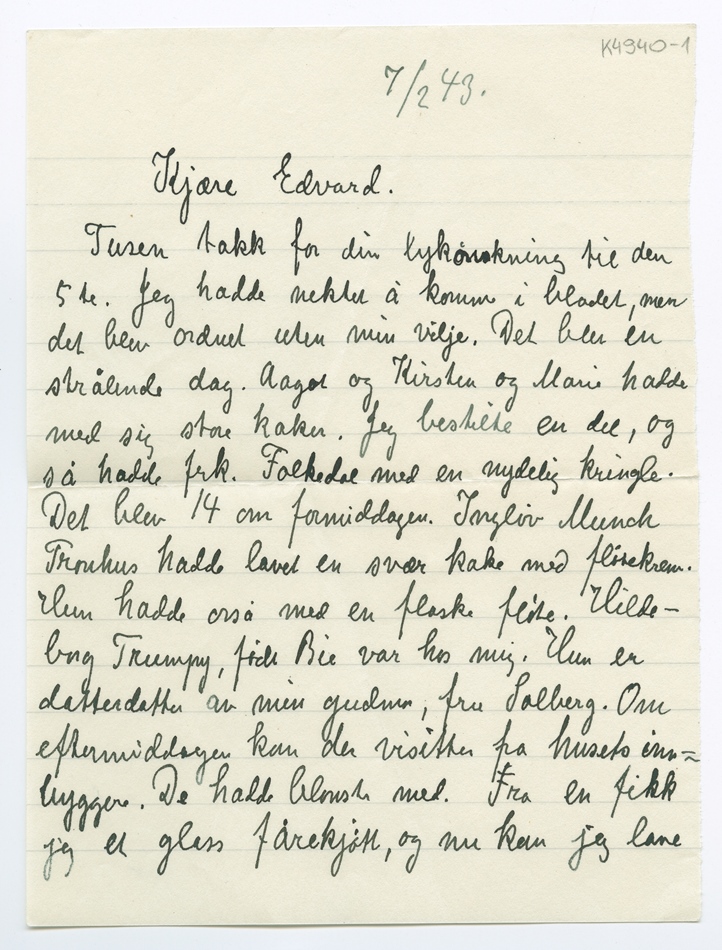 K4940-1
7/2 43.
Kjære Edvard.
Tusen takk for din lykønskning til den
5 te. Jeg hadde nektet å komme i bladet, men
det blev ordnet uten min vilje. Det blev en
strålende dag. Aagot og Kirsten og Marie hadde
med sig store kaker. Jeg bestilte en del, og
så hadde frk. Folkedal med en nydelig kringle.
Det blev 14 om formiddagen. Ingløv Munch
Tronhus hadde lavet en svær kake med fløtekrem.
Hun hadde også med en flaske fløte. Hilde-
borg Trumpy, født Bie var hos mig. Hun er
datterdatter av min gudmor, fru Solberg. Om
eftermiddagen kom der visitter fra husets inn=
byggere. De hadde blomster med. Fra en fikk
jeg et glass fårekjøtt, og nu kan jeg lave